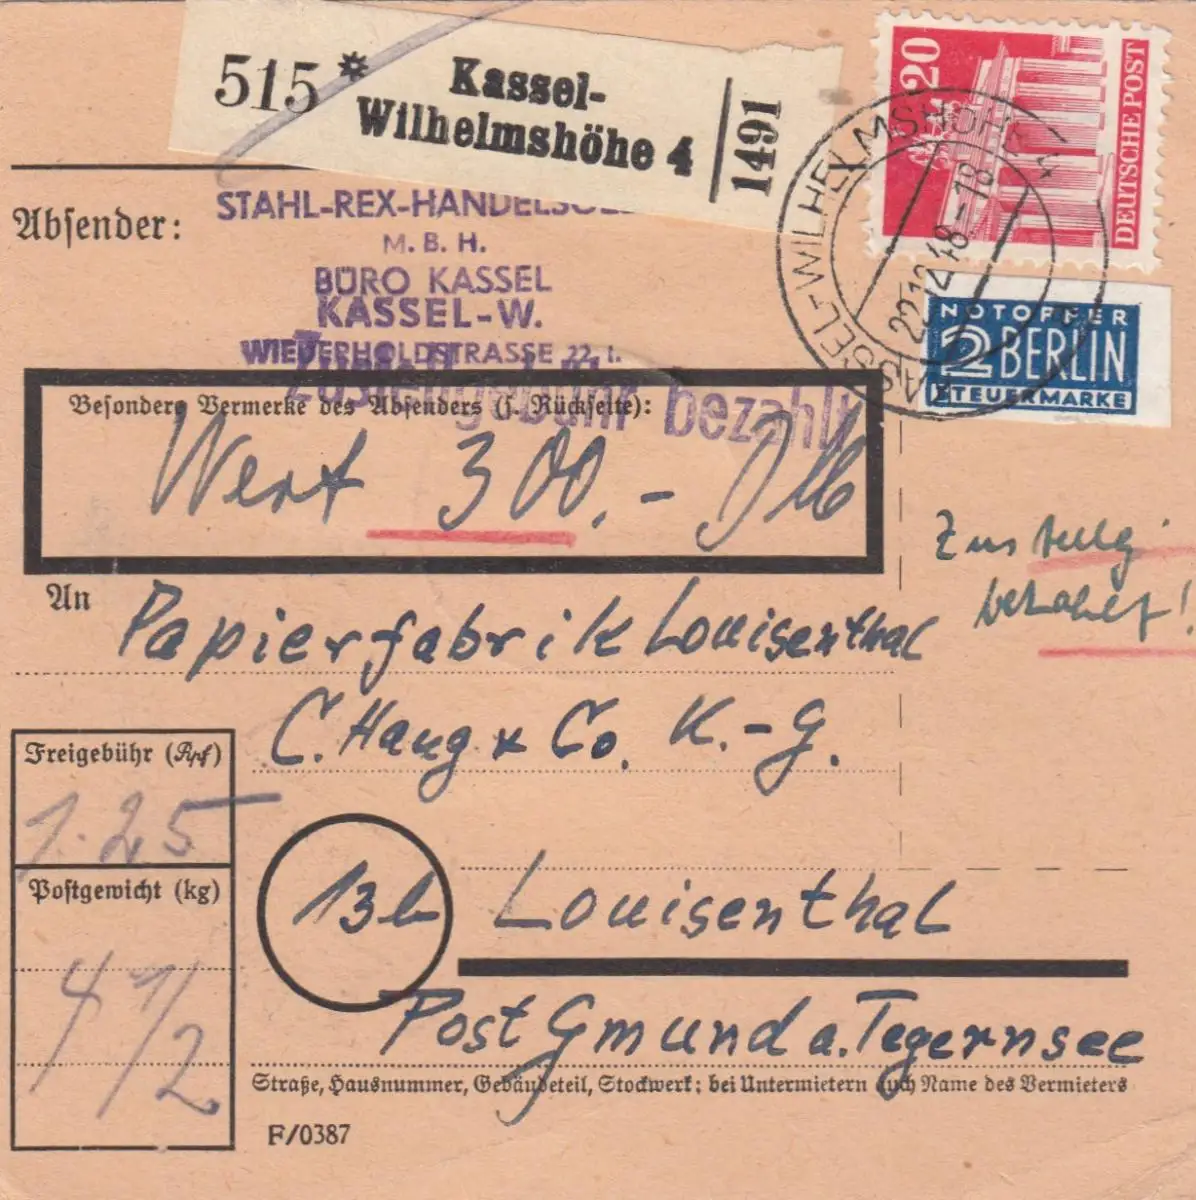 515 * Kassel-
Wilhelmshöhe 4
1491
20
DEUTSCHE POST
KASSEL-WILHELMSHÖHE 4
22.12.48.-18
NOTOPFER
2 BERLIN
STEUERMARKE
Absender:
STAHL-REX-HANDELSGES
M. B. H.
BÜRO KASSEL
KASSEL-W.
WIEDERHOLDSTRASSE 22 I.
Zustellgebühr bezahlt
Besondere Vermerke des Absenders (s. Rückseite):
Wert 300.- DM
Zustellg
bezahlt!
An Papierfabrik Louisenthal
C. Haug & Co. K.-G.
Freigebühr (Rpf)
1.25
Postgewicht (kg)
4 1/2
13b Louisenthal
Post Gmund a. Tegernsee
Straße, Hausnummer, Gebäudeteil, Stockwerk; bei Untermietern auch Name des Vermieters
F/0387